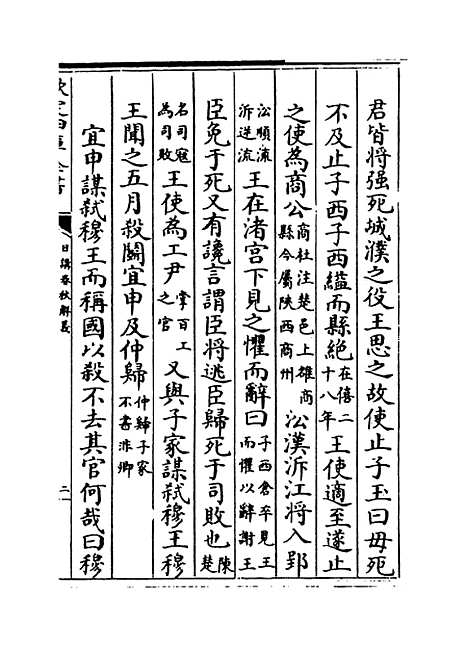 君皆將强死城濮之役王思之故使止子玉曰毋死
不及止子西子西縊而縣絶在僖二十八年王使適至遂止
之使為商公商杜注楚邑上雒商縣今屬陜西商州㳂漢泝江將入郢
㳂順流泝逆流王在渚宫下見之懼而辭曰子西倉卒見王而懼以辭謝王
臣免于死又有讒言謂臣將逃臣歸死于司敗也陳楚
名司寇為司敗王使為工尹掌百工之官又與子家謀弑穆王穆
王聞之五月殺鬭宜申及仲歸仲歸子家不書非卿
宜申謀弑穆王而稱國以殺不去其官何哉曰穆
欽定四庫全書
日講春秋解義